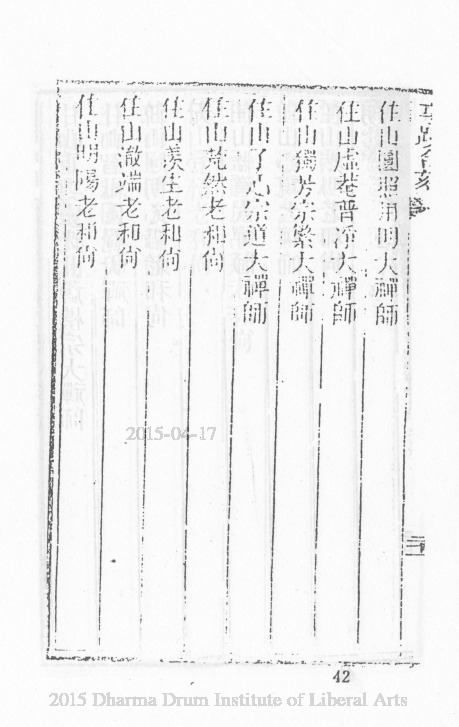 住山圓照用明大禪師
住山虛菴普淨大禪師
住山獨芳宗槃大禪師
住山了心宗道大禪師
住山梵然老和尚
住山羨生老和尚
住山澈端老和尚
住山明陽老和尚
2015-04-17
42
2015 Dharma Drum Institute of Liberal Arts